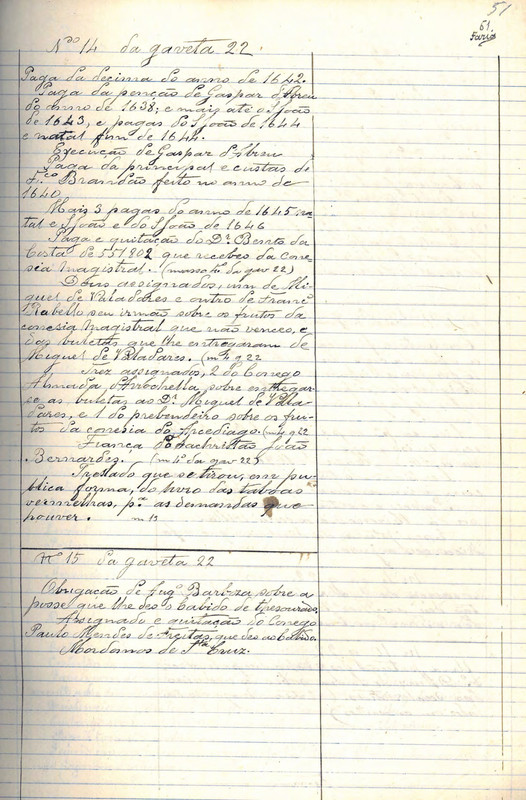 51
51
Faria
Nº 14 da gaveta 22
Paga da decima do anno de 1642.
Paga da penção de Gaspar d'Abreu
do anno de 1638; e mais até o S. João
de 1643, e pagas do S. João de 1644
e natal fim de 1644.
Execução de Gaspar d'Abreu
Paga da principal e custas de
F.co Brandão feito no anno de
1640
Mais 3 pagas do anno de 1645 na-
tal e S. João e do S. João de 1646
Paga e quitação do D.r Bento da
Costa de 551802 que recebeu da cone-
sia Magistral. (masso nº da gav 22)
Dous assignados, um de Mi-
guel de Valadares e outro de Franc.º
Rabello seu irmão sobre os frutos da
conesia Magistral que não venceo, e
das buletas que lhe entregaram de
Miguel de Valadares. (m 4 g 22
Trez assignados, 2 do Conego
Almada, d'Arrochella, sobre entregar-
se as buletas ao D.r Miguel de Valla-
dares, e 1 do prebendeiro sobre os fru-
tos da conesia do Arcediago. (m 4 g 22
Fiança do Sachristão João
Bernardes. (m 4º da gav 22)
Treslado que se tirou, em pu-
blica forma, do livro das taboas
vermelhas, p.ª as demandas que
houver. m 13
Nº 15 da gaveta 22
Obrigação de Aug.º Barboza sobre a
posse que lhe deo o Cabido de thesourado.
Assignado e quitação do Conego
Paulo Mendes de Freitas, que deo ao Cabido.
Mordomos de S.ta Cruz.